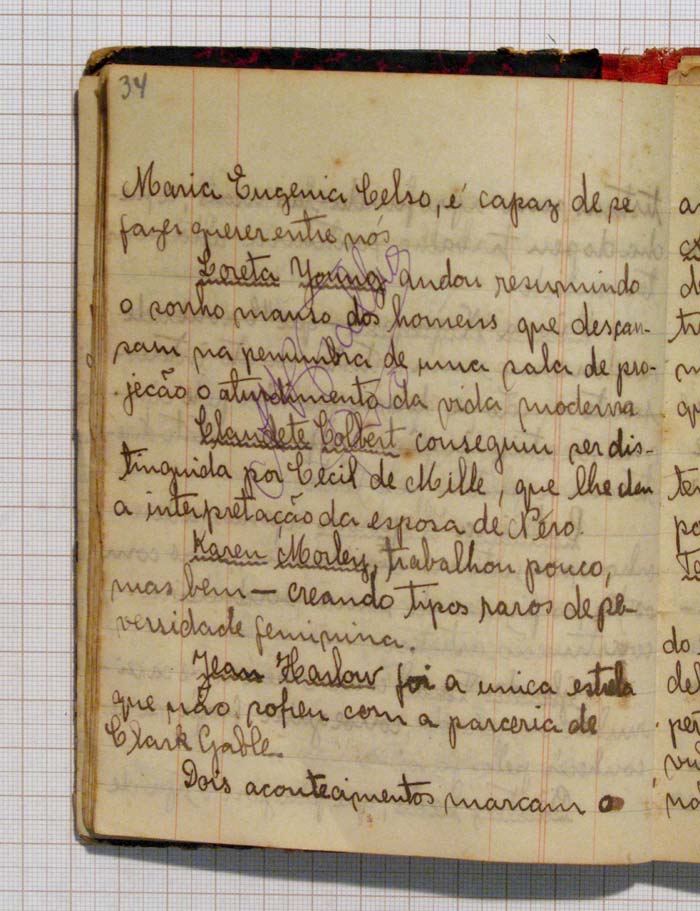 34
Maria Eugenia Celso, é capaz de se
fazer querer entre nós
Loreta Young andou resumindo
o sonho manso dos homens que descan-
sam na penumbra de uma sala de pro-
jecão o aturdimento da vida moderna
Claudete Colbert conseguiu ser dis-
tinguida por Cecil de Mille, que lhe deu
a interpretação da esposa de Néro.
Karen Morley, trabalhou pouco,
mas bem — creando tipos raros de pe-
versidade feminina.
Jean Harlow foi a unica estrela
que não sofreu com a parceria de
Clark Gable.
Dois acontecimentos marcam o